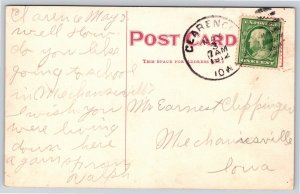 Clarence May 2
well How
do you like
going to school
in Mechanicsville
I wish you
were living
down here
again
Ralph
POST CARD
THIS SPACE FOR
CLARENCE
MAY
3
7AM
1912
IOWA
Mr Earnest Clippinger
Mechanicsville
Iowa